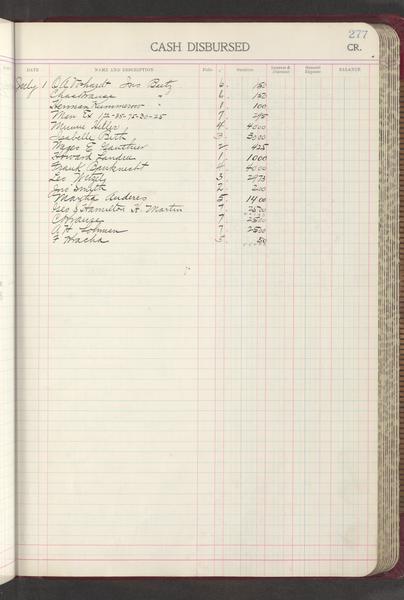 277
CASH DISBURSED
CR.
DATE NAME AND DESCRIPTION Folio Sundries Interest & Discount General Expense BALANCE
July 1 Jno Butz 6 150
Chas Krause " 6 150
Herman " 1 100
Men Ex 12-35-75-30-25 7
Minnie Heller 4 4000
Isabelle Beth 3 3000
Wages E Gauthier 2 425
Howard Landis 1 1000
Frank 4 4000
Leo 3 2973
Jno Smyth 2 200
Martha Anderes 5 1400
Geo S Hamilton H. Martin 7 2500
C Krause 7 2500
A H Lohmen 7 2500
F Hracha 5 50